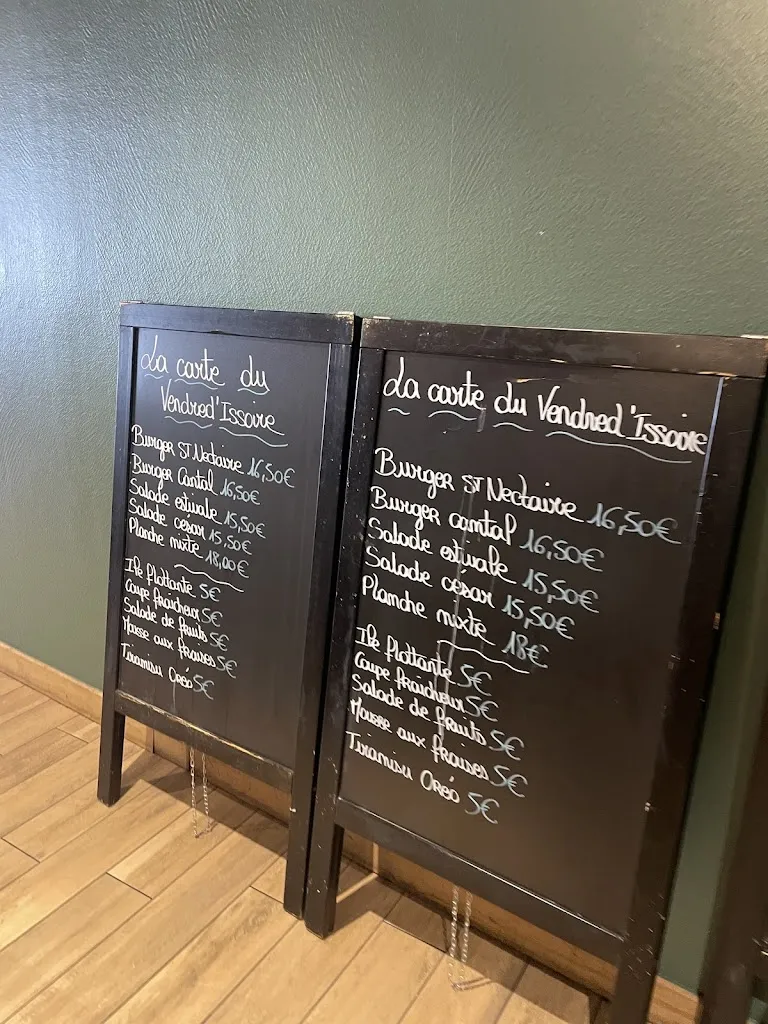 La carte du
Vendred'Issoire
Burger St Nectaire 16,50€
Burger Cantal 16,50€
Salade estivale 15,50€
Salade césar 15,50€
Planche mixte 18,00€
Ile flottante 5€
Coupe fraicheur 5€
Salade de fruits 5€
Mousse aux fraises 5€
Tiramisu Oréo 5€
La carte du Vendred'Issoire
Burger St Nectaire 16,50€
Burger cantal 16,50€
Salade estivale 15,50€
Salade césar 15,50€
Planche mixte 18€
Ile flottante 5€
Coupe fraicheur 5€
Salade de fruits 5€
Mousse aux fraises 5€
Tiramisu Oréo 5€